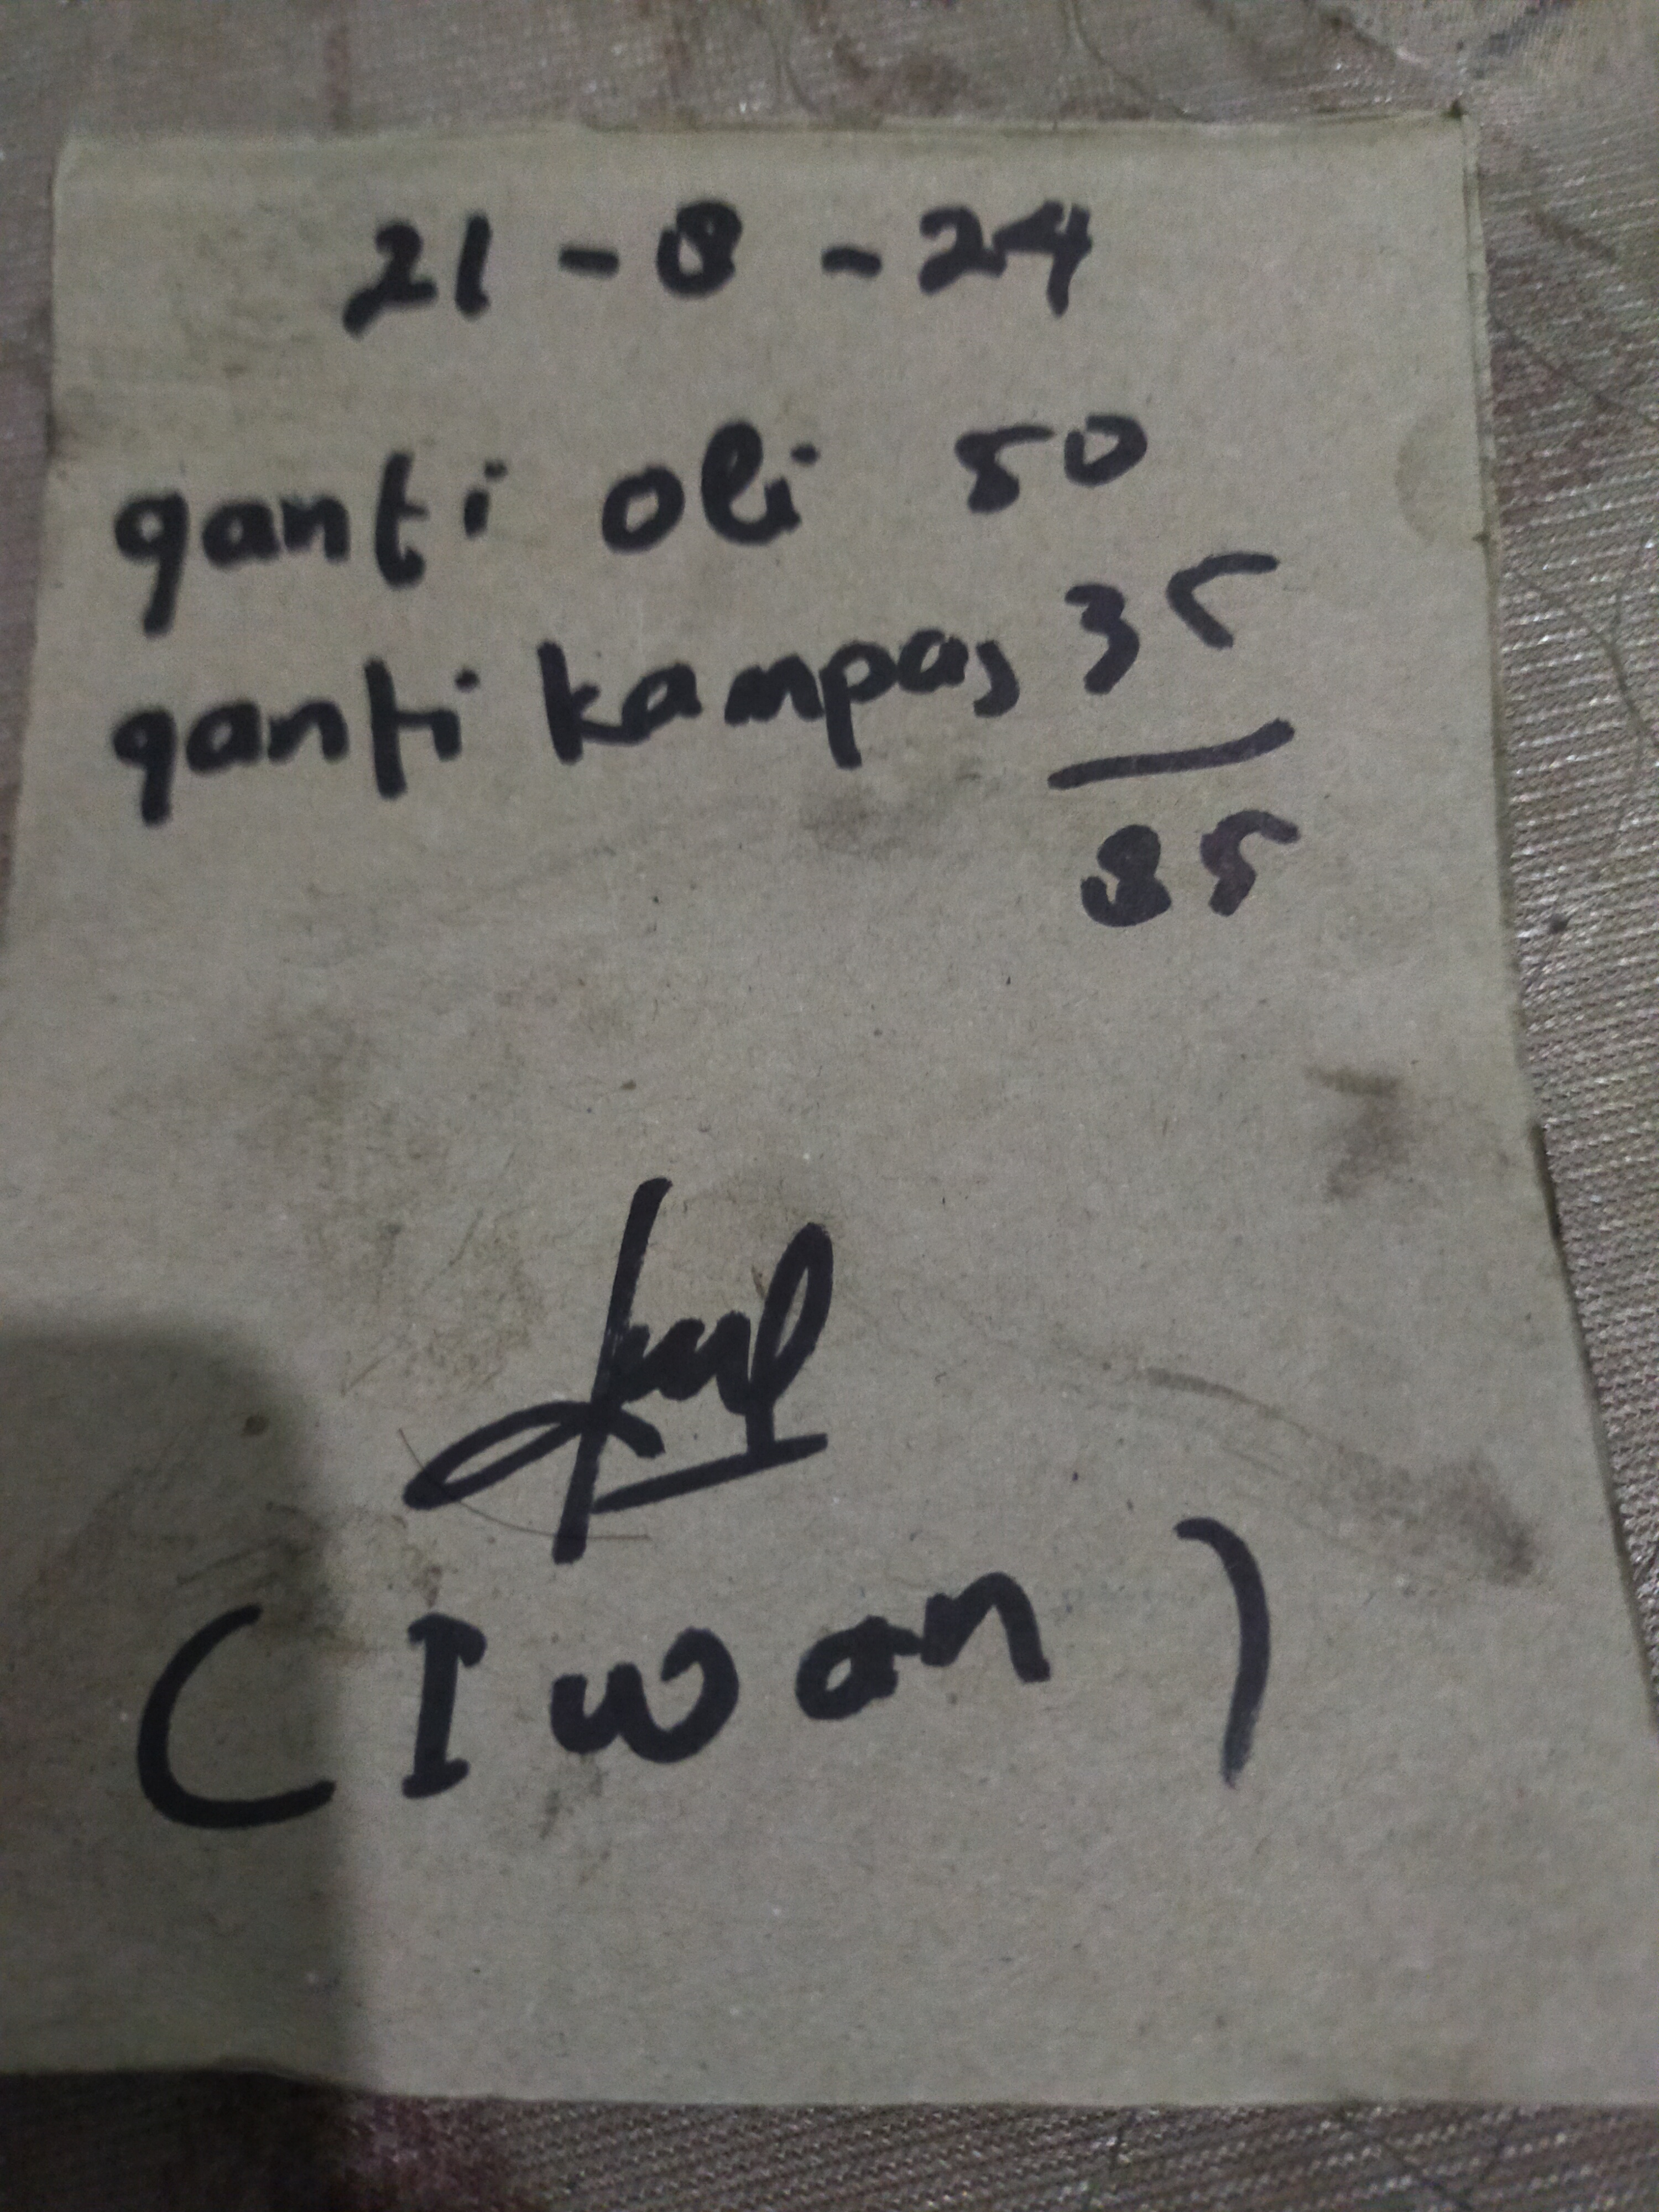 21 - 8 - 24
ganti oli 50
ganti kampas 35
85
(Iwan)